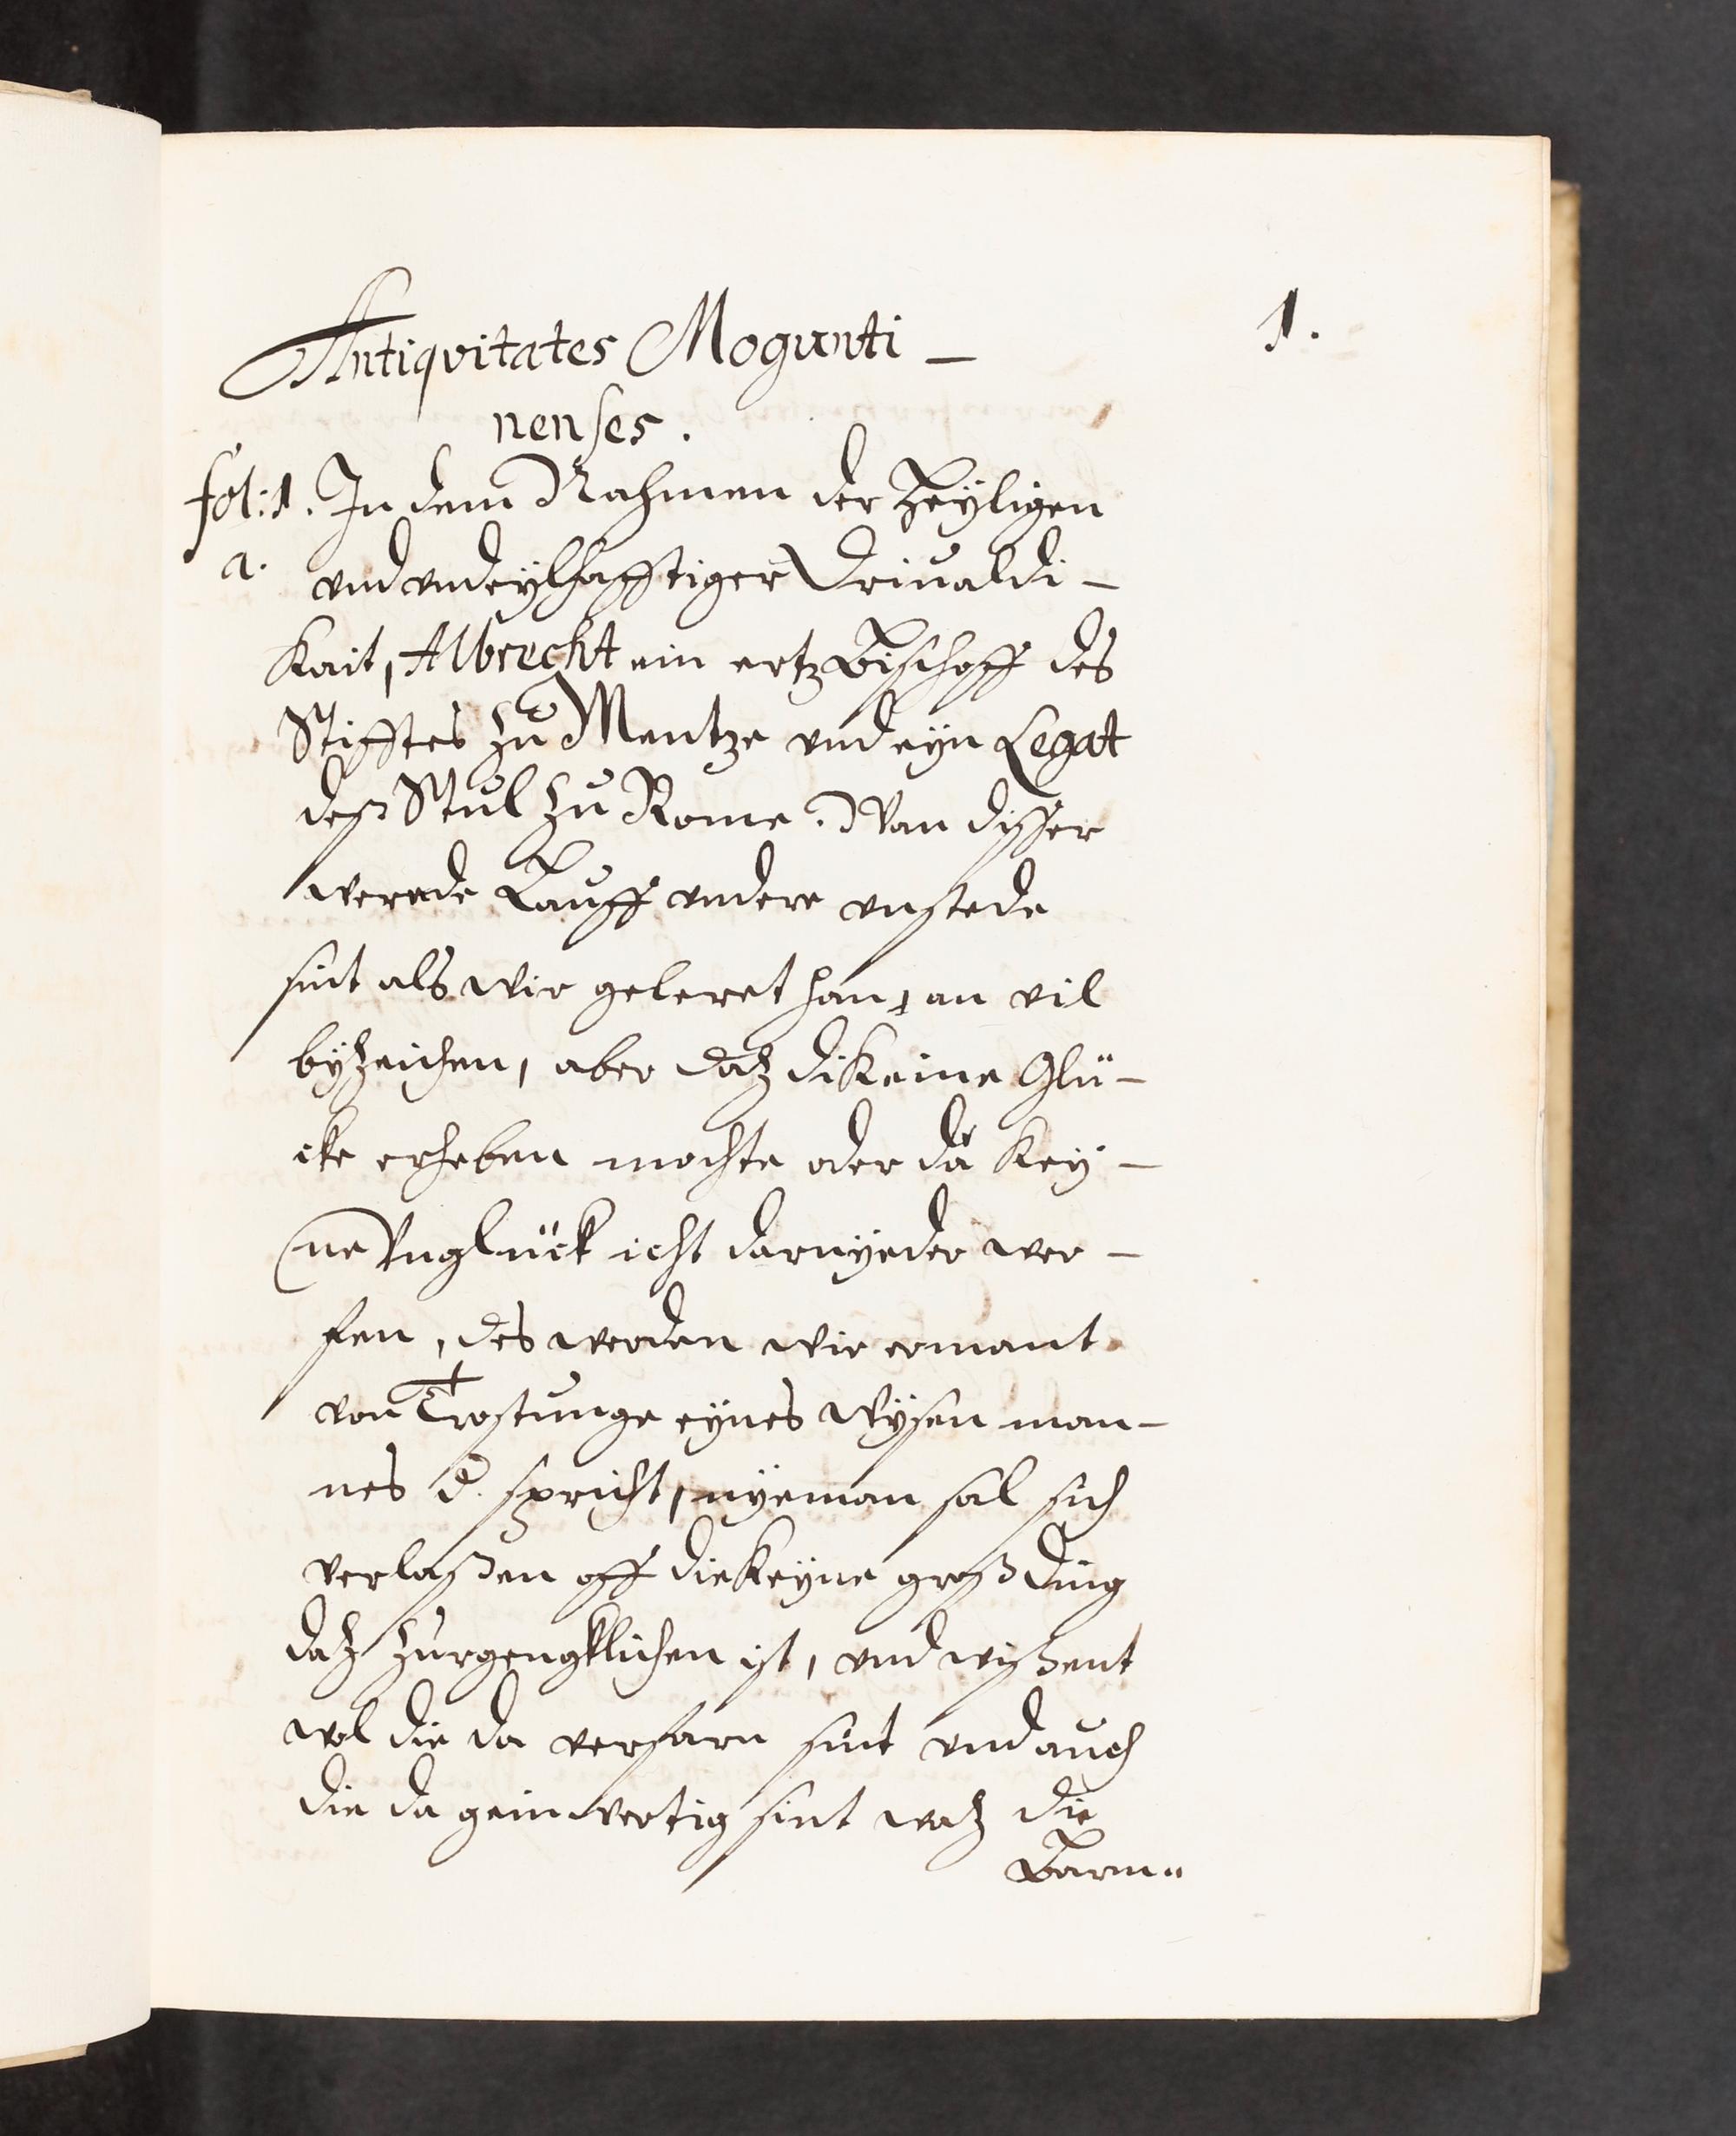 1.
Antiqvitates Mogunti-
nenses.
fol: 1. In dem Nahmen der Heyligen
a. vnd vndeylhafftiger Driualdi-
Kait, Albrecht ein ertzBischoff des
Stifftes zu Mentze vnd eyn Legat
deß Stul zu Rome. Wan disser
werede Lauff vndere vnstede
sint als wir geleret han, an vil
byzeichen, aber daz diKeine Glü-
cke erheben mochte oder da Key-
ne Vnglück icht darnyeder wer-
fen, des werden wir ermant
von Trostunge eynes wysen man-
nes d. spricht, nyeman sal sich
verlaßen off dieKeyne groß ding
daz zurgengklichen ist, vnd wißent
wol die da verfarn sint vnd auch
die da geinwertig sint waz die
Barm=